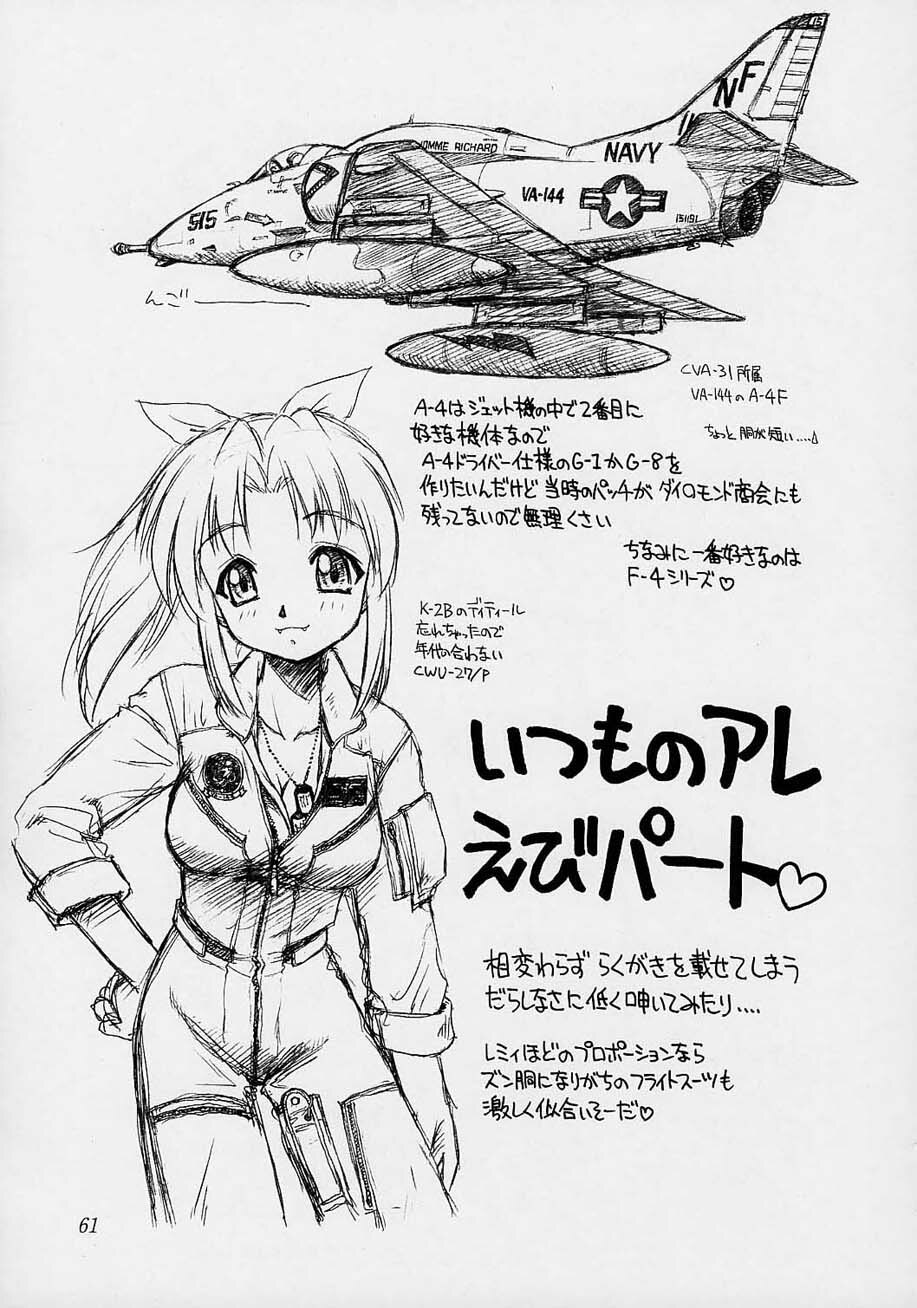 15
NF
11
NAVY
HOMME RICHARD
VA-144
515
151191
んごーーーー
CVA-31所属
VA-144のA-4F
ちょっと胴が短い....
A-4はジェット機の中で2番目に
好きな機体なので
A-4ドライバー仕様のG-1かG-8を
作りたいんだけど 当時のパッチが ダイロモンド商会にも
残ってないので無理くさい
ちなみに一番好きなのは
F-4シリーズ♡
K-2Bのディティール
忘れちゃったので
年代の合わない
CWU-27/P
いつものアレ
えびパート♡
相変わらず らくがきを載せてしまう
だらしなさに低く呻いてみたり....
レミィほどのプロポーションなら
ズン胴になりがちのフライトスーツも
激しく似合いそーだ♡
61